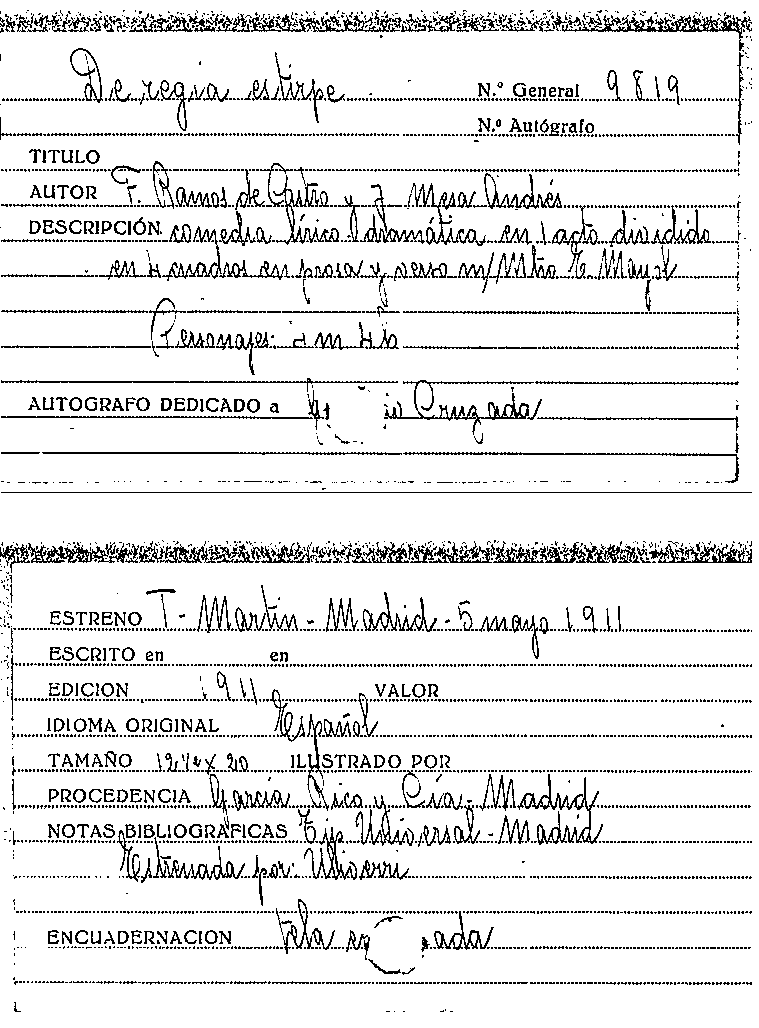 De regia estirpe
N.º General 9819
N.º Autógrafo
TITULO
AUTOR F. Ramos de Castro y J Mesa Andrés
DESCRIPCIÓN comedia lírico-dramática en 1 acto dividido
en 4 cuadros en prosa y verso m/ Mtro E. Mayol
Personajes: 7 m 4 h
AUTOGRAFO DEDICADO a Cruzada
ESTRENO T- Martin - Madrid - 5 mayo 1911
ESCRITO en en
EDICION 1911 VALOR
IDIOMA ORIGINAL Español
TAMAÑO 12½ x 20 ILUSTRADO POR
PROCEDENCIA García Rico y Cía - Madrid
NOTAS BIBLIOGRAFICAS Tip Universal - Madrid
Estrenada por: Uliverri
ENCUADERNACION tela